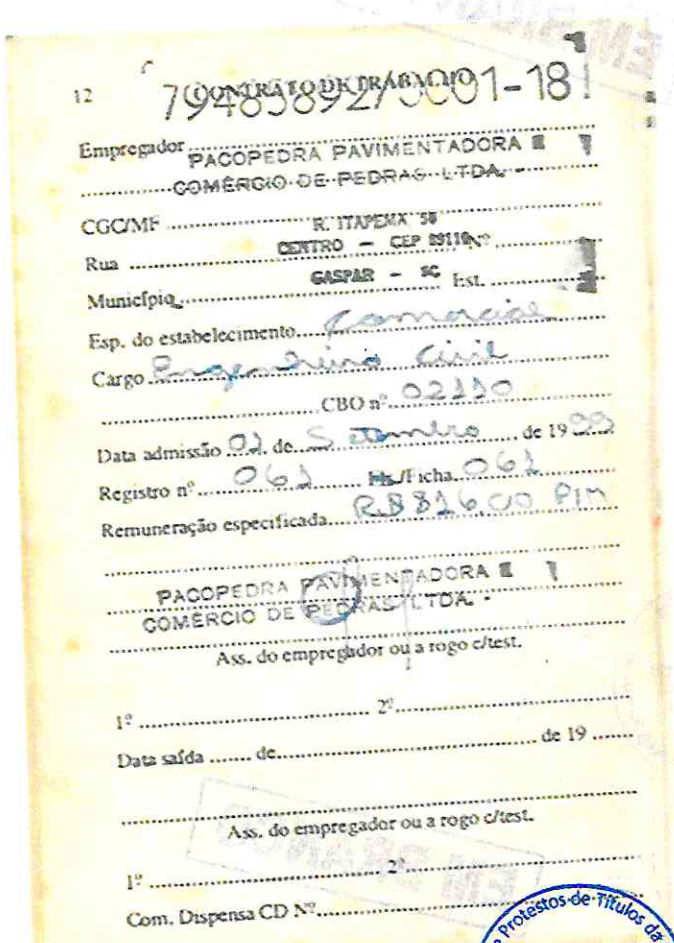 12 CONTRATO DE TRABALHO
79485892/0001-18
Empregador
PACOPEDRA PAVIMENTADORA E
COMÉRCIO DE PEDRAS LTDA. -
CGC/MF
R. ITAPEMA 58
Rua CENTRO - CEP 89110 Nº
Município GASPAR - SC Est.
Esp. do estabelecimento Comercial
Cargo Engenheiro Civil
CBO nº 02110
Data admissão 01 de Setembro de 1999
Registro nº 061 Fls./Ficha 061
Remuneração especificada R$ 816,00 P/M
PACOPEDRA PAVIMENTADORA E
COMÉRCIO DE PEDRAS LTDA. -
Ass. do empregador ou a rogo c/test.
1º 2º
Data saída de de 19
Ass. do empregador ou a rogo c/test.
1º 2º
EM BRANCO
Com. Dispensa CD Nº
Protestos de Títulos da